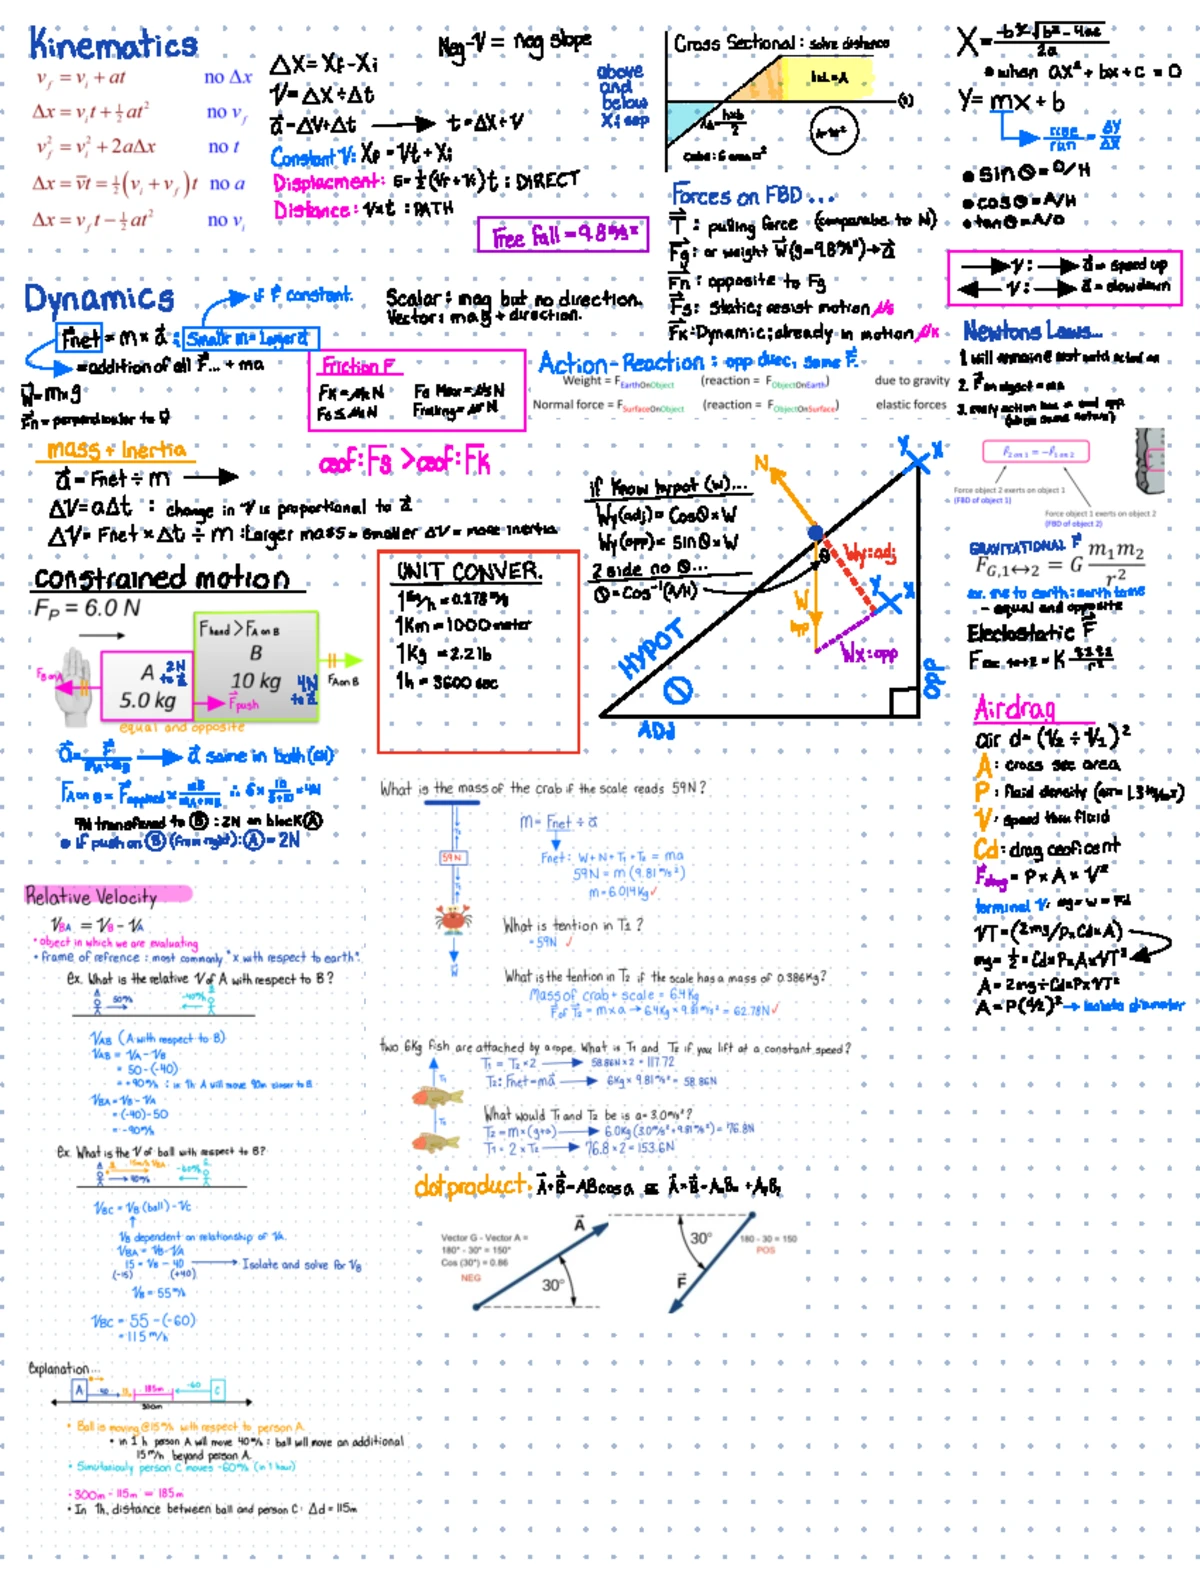 Kinematics
v_f = v_i + at no Δx
Δx = v_i t + ½at² no v_f
v_f² = v_i² + 2aΔx no t
Δx = v̄t = ½(v_i + v_f)t no a
Δx = v_f t − ½at² no v_i
ΔX = Xf - Xi
V = ΔX ÷ Δt
a = ΔV ÷ Δt → t = ΔX ÷ V
Constant V: XF = Vt + Xi
Displacment: S = ½(VF + Vi)t : DIRECT
Distance: V×t : PATH
Free Fall = 9.8 m/s²
Neg-V = neg slope
above
and
below
Xi sep
Cross Sectional : solve distance
h×b
2
(t)
X = -b ± √b² - 4ac
2a
when ax² + bx + c = 0
Y = mx + b
rise = ΔY
run ΔX
sin Θ = O/H
cos Θ = A/H
tan Θ = A/O
V: → a = speed up
V: → a = slow down
Forces on FBD ...
T : pulling force (comparable to N)
Fg : or weight W (g = 9.8 m/s²) → a
Fn : opposite to Fg
Fs : Static; resist motion μs
Fk : Dynamic; already in motion μk
Dynamics
if F constant.
Fnet = m × a : Smaller m = Larger a
= addition of all F... + ma
W = m×g
Fn = perpendicular to
Scalar : mag but no direction.
Vector : mag + direction.
Friction F
FK = μk N
Fs Max = μs N
Fs ≤ μs N
Action-Reaction : opp direc, same F.
Weight = F EarthOnObject (reaction = F ObjectOnEarth) due to gravity
Normal force = F SurfaceOnObject (reaction = F ObjectOnSurface) elastic forces
Newtons Laws...
1. will
2. F on object = ma
3. every action has
mass + Inertia
a = Fnet ÷ m →
ΔV = aΔt : change in V is proportional to a
ΔV = Fnet × Δt ÷ m : Larger mass = smaller ΔV = more inertia
coof : Fs > coof : Fk
F 2 on 1 = -F 1 on 2
Force object 2 exerts on object 1
(FBD of object 1)
Force object 1 exerts on object 2
(FBD of object 2)
GRAVITATIONAL F
F_G,1↔2 = G m₁m₂
r²
ex. me to earth : earth to me
- equal and opposite
Electostatic F
constrained motion
F_P = 6.0 N
Fhand > F A on B
F B on A
A
2N
5.0 kg
B
10 kg
4N
Fpush
F A on B
equal and opposite
a = F
mA + mB
→ a same in both (all)
FA on B = Fapplied × mB
mA + mB
∴ 6 × 10
5+10
= 4N
4N transfered to B : 2N on block A
if push on B (from right) : A = 2N
UNIT CONVER.
1 Km/h = 0.278 m/s
1Km = 1000 meter
1Kg = 2.2 lb
1h = 3600 sec
if Know hypot (w)...
Wy(adj) = Cos Θ × W
Wy(opp) = sin Θ × W
2 side no Θ...
Θ = Cos⁻¹(A/H)
N
Y
X
Θ
Wy:adj
Y
X
W
Wx:opp
HYPOT
ADJ
OPP
Airdrag
air d = (V₂ ÷ V₁)²
A : cross sec area
P : fluid density
V : speed thru fluid
Cd : drag coeficent
Fdrag = P × A × V²
terminal V: mg = w = Fd
VT = √(2mg/p×Cd×A)
mg = ½ = Cd×P×A×VT²
A = 2mg ÷ Cd×P×VT²
→ Isolate diameter
What is the mass of the crab if the scale reads 59N?
59 N
m = Fnet ÷ a
Fnet : W + N + T₁ + T₂ = ma
59N = m (9.81 m/s²)
m = 6.014 Kg ✓
What is tention in T₁ ?
= 59N ✓
What is the tention in T₂ if the scale has a mass of 0.386Kg?
Mass of crab + scale = 6.4Kg
F of T₂ = m×a → 6.4Kg × 9.81 m/s² = 62.78N ✓
two 6Kg fish are attached by a rope. What is T₁ and T₂ if you lift at a constant speed?
T₁ = T₂ × 2 → 58.86N × 2 = 117.72
T₂: Fnet = ma → 6Kg × 9.81 m/s² = 58.86N
What would T₁ and T₂ be is a = 3.0 m/s²?
T₂ = m×(g+a) → 6.0Kg (3.0 m/s² + 9.81 m/s²) = 76.8N
T₁ = 2 × T₂ → 76.8 × 2 = 153.6N
T₁
T₂
dot product:
Vector G - Vector A =
180° - 30° = 150°
Cos (30°) = 0.86
NEG
A
30°
30°
F
180 - 30 = 150
POS
Relative Velocity
VBA = VB - VA
• object in which we are evaluating
• frame of refrence : most commonly "x with respect to earth".
ex. What is the relative V of A with respect to B?
VAB (A with respect to B)
VAB = VA - VB
= 50 - (-40)
= +90 m/h : in 1h A will move 90m closer to B
VBA = VB - VA
= (-40) - 50
= -90 m/h
ex. What is the V of ball with respect to B?
VBC = VB (ball) - VC
VB dependent on relationship of VA.
VBA = VB - VA
15 = VB - 40 → Isolate and solve for VB
(-15) (+40)
VB = 55 m/h
VBC = 55 - (-60)
= 115 m/h
Explanation...
A
40
15
185m
-60
C
300m
• Ball is moving @15 m/h with respect to person A.
• in 1 h person A will move 40 m/h : ball will move an additional
15 m/h beyond person A.
• Simultaniously person C moves -60 m/h (in 1 hour)
• 300m - 115m = 185m
• In 1h, distance between ball and person C : Δd = 115m